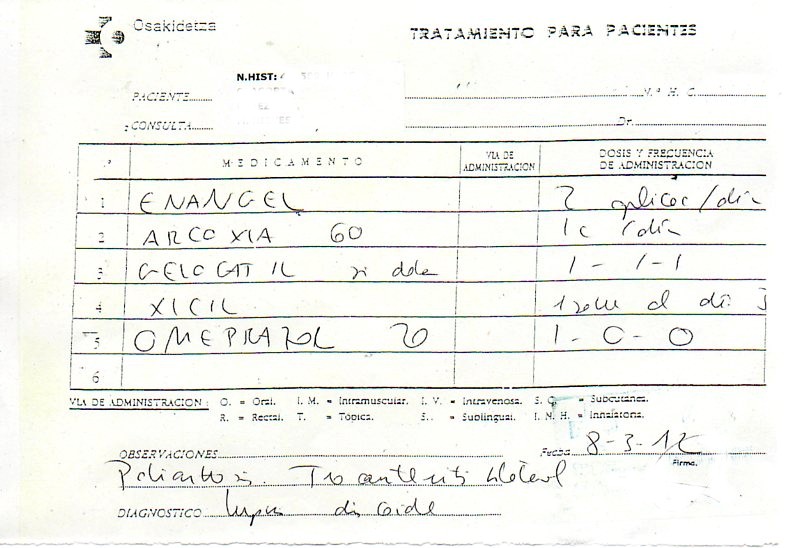 Osakidetza
TRATAMIENTO PARA PACIENTES
N.HIST:
PACIENTE
N.º H. C.
CONSULTA
Dr.
MEDICAMENTO VIA DE ADMINISTRACION DOSIS Y FRECUENCIA DE ADMINISTRACION
1 ENANGEL 2 aplicac/día
2 ARCOXIA 60 1c /día
3 GELOCATIL si dolor 1-1-1
4 XICIL 1 al día
5 OMEPRAZOL 20 1-0-0
6
VIA DE ADMINISTRACION: O. = Oral. I. M. = Intramuscular. I. V. = Intravenosa. S. C. = Subcutánea.
R. = Rectal. T. = Tópica. S. = Sublingual. I. N. H. = Inhalatoria.
OBSERVACIONES
Fecha 8-3-12
Firma.
Poliartrosis. Trocanteritis bilateral
DIAGNOSTICO lupus discoide